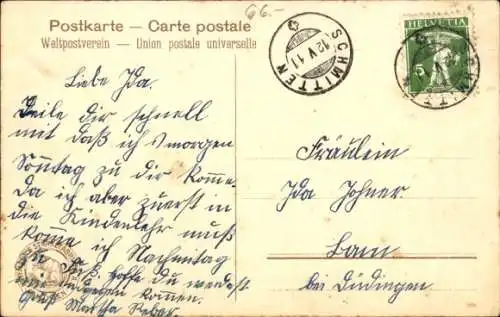 66.-
Postkarte — Carte postale
Weltpostverein — Union postale universelle
SCHMITTEN
12.V.11
HELVETIA
5
Liebe Ida.
Teile dir schnell
mit daß ich morgen
Sonntag zu dir komme.
Da ich aber zuerst in
die Kinderlehr muß
komme ich Nachmitag
Fuß, hoffe du werdest
mir kommen.
Gruß Martha
Fräulein
Ida Johner.
Lam
bei Düdingen